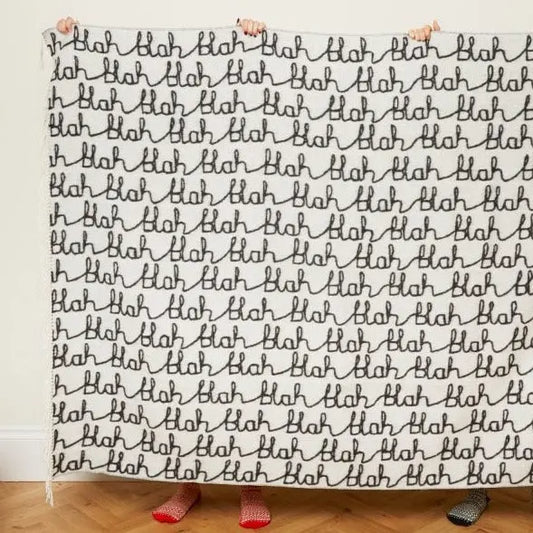 blah blah blah blah blah blah blah
blah blah blah blah blah blah blah
blah blah blah blah blah blah blah
blah blah blah blah blah blah blah blah
blah blah blah blah blah blah blah
blah blah blah blah blah blah blah blah
blah blah blah blah blah blah blah
blah blah blah blah blah blah blah blah
blah blah blah blah blah blah blah
blah blah blah blah blah blah blah blah
blah blah blah blah blah blah blah
blah blah blah blah blah blah blah blah
blah blah blah blah blah blah blah
blah blah blah blah blah blah blah blah
blah blah blah blah blah blah blah
blah blah blah blah blah blah blah blah